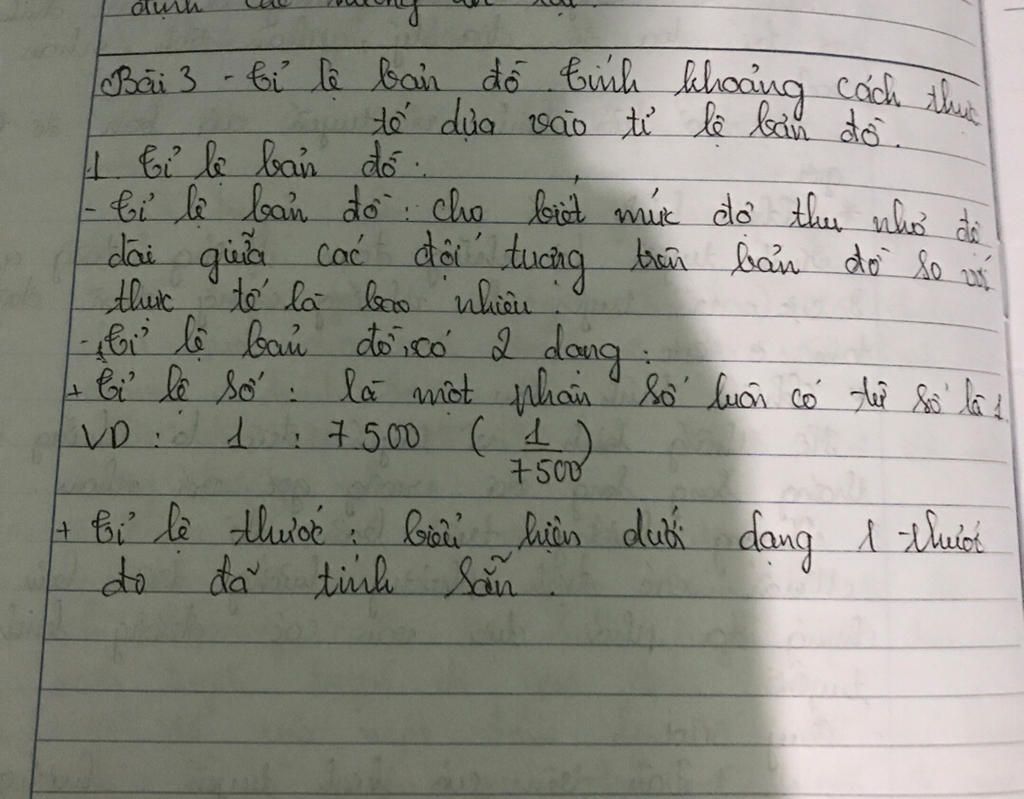 định các
Bài 3 - Tỉ lệ bản đồ. Tính khoảng cách thực
tế dựa vào tỉ lệ bản đồ.
1. Tỉ lệ bản đồ.
- Tỉ lệ bản đồ: cho biết mức độ thu nhỏ độ
dài giữa các đối tượng trên bản đồ so với
thực tế là bao nhiêu.
- Tỉ lệ bản đồ có 2 dạng:
+ Tỉ lệ số: là một phân số luôn có tử số là 1
VD: 1 : 7 500 ( 1 / 7 500 )
+ Tỉ lệ thước: biểu hiện dưới dạng 1 thước
đo đã tính sẵn.